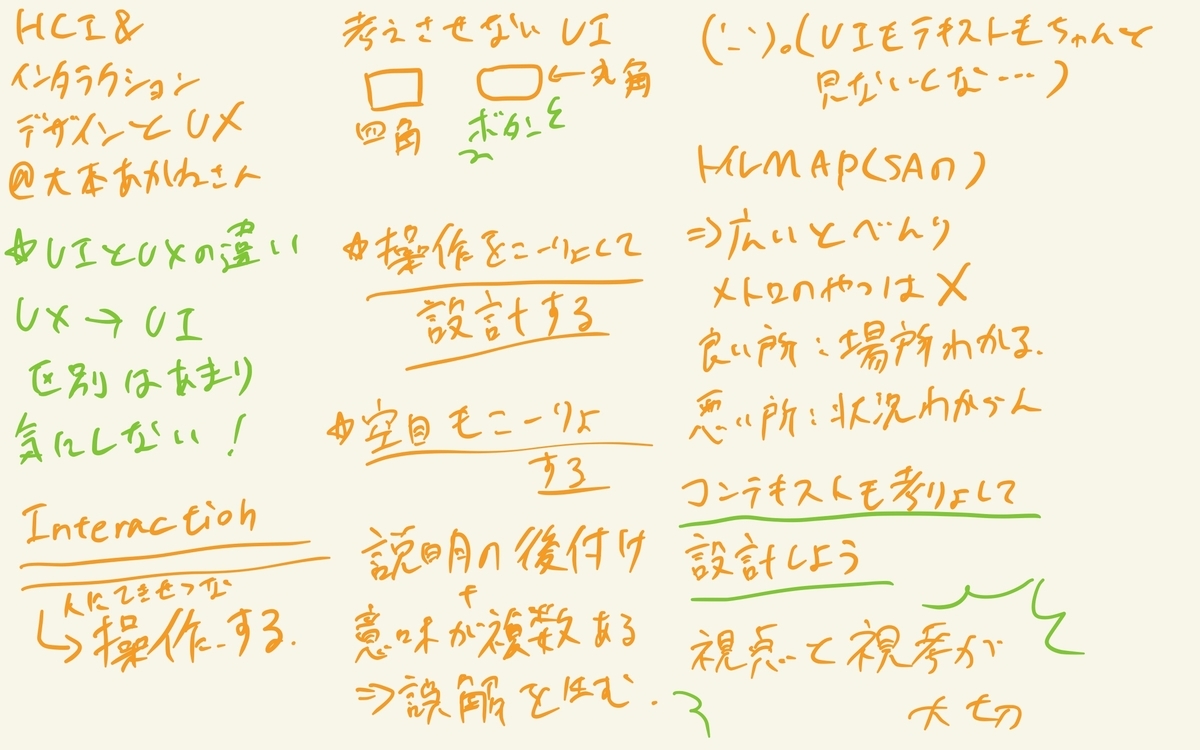 HCI &
インタラクション
デザインと UX
@大本あかねさん
☆UIとUXの違い
UX → UI
区別はあまり
気にしない!
Interaction
人にてきせつな
↳操作にする.
考えさせない UI
←丸角
四角
ボタンを
☆操作をこーりょして
設計する
☆空目もこーりょ
する
説明の後付け
+
意味が複数ある
⇒誤解を生む.
UIもテキストもちゃんと
見ないしな…)
MAP(SAの)
⇒広いとべんり
メトロのやつは X
良い所:場所わかる.
悪い所:状況わからん
コンテキストも考りょして
設計しよう
視点と視考が
大切